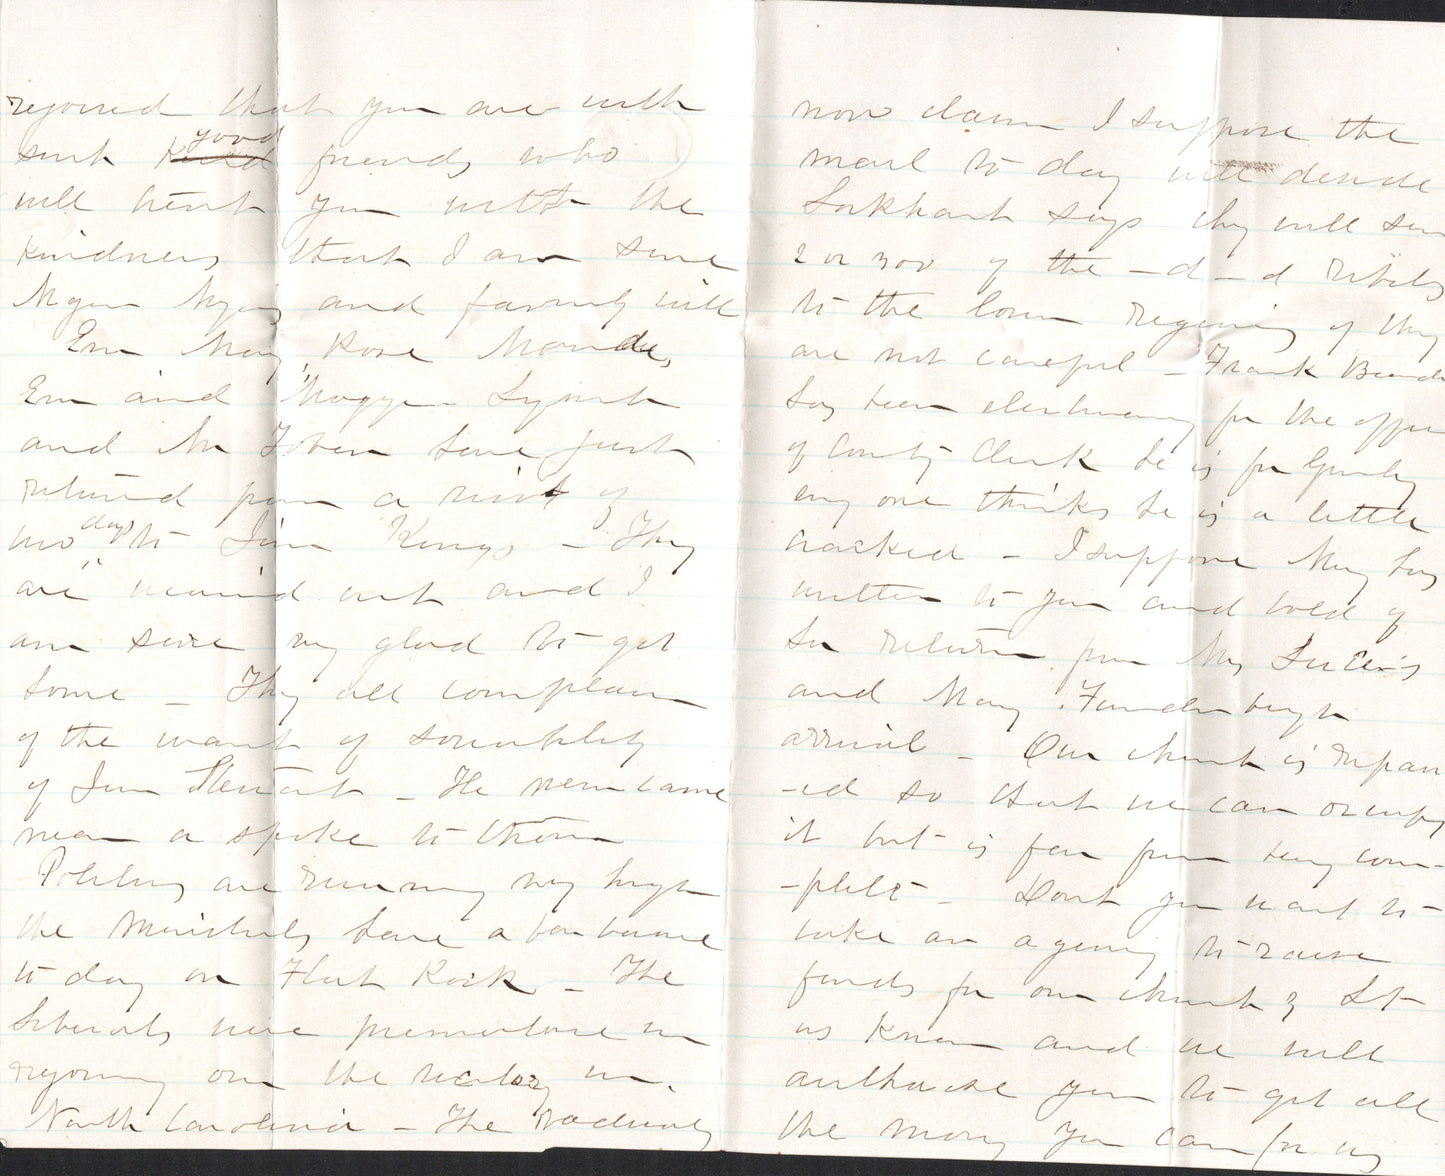 rejoiced that you are with
such k̶i̶n̶d̶ good friends who
will treat you with the
kindness that I am sure
Mrs and family will
Em May, Rose
Em and Maggie Lynch
and Mr have just
returned from a visit of
two days to Jim Kings - They
are wearied out and I
am sure very glad to get
home - They all complain
of the want of sociability
of Jim Stewart - He never came
near or spoke to them
Politics are running very high
the Ministers have a barbecue
to day on Flat Rock - The
Liberals were premature in
rejoicing over the victory in
North Carolina - The radicals
now claim I suppose the
mail to day will decide
Lockhart says they will send
2 or 300 of the - d - d rebels
to the lower regions if they
are not careful - Frank
has been electioneering for the office
of County Clerk he is for Greeley
every one thinks he is a little
cracked - I suppose May has
written to you and told of
her return from Mrs
and May
arrival - Our church is repair
-ed so that we can occupy
it but is far from being com-
-plete - Dont you want to
take an agency to raise
funds for our church? Let
us know and we will
authorise you to get all
the money you can for us